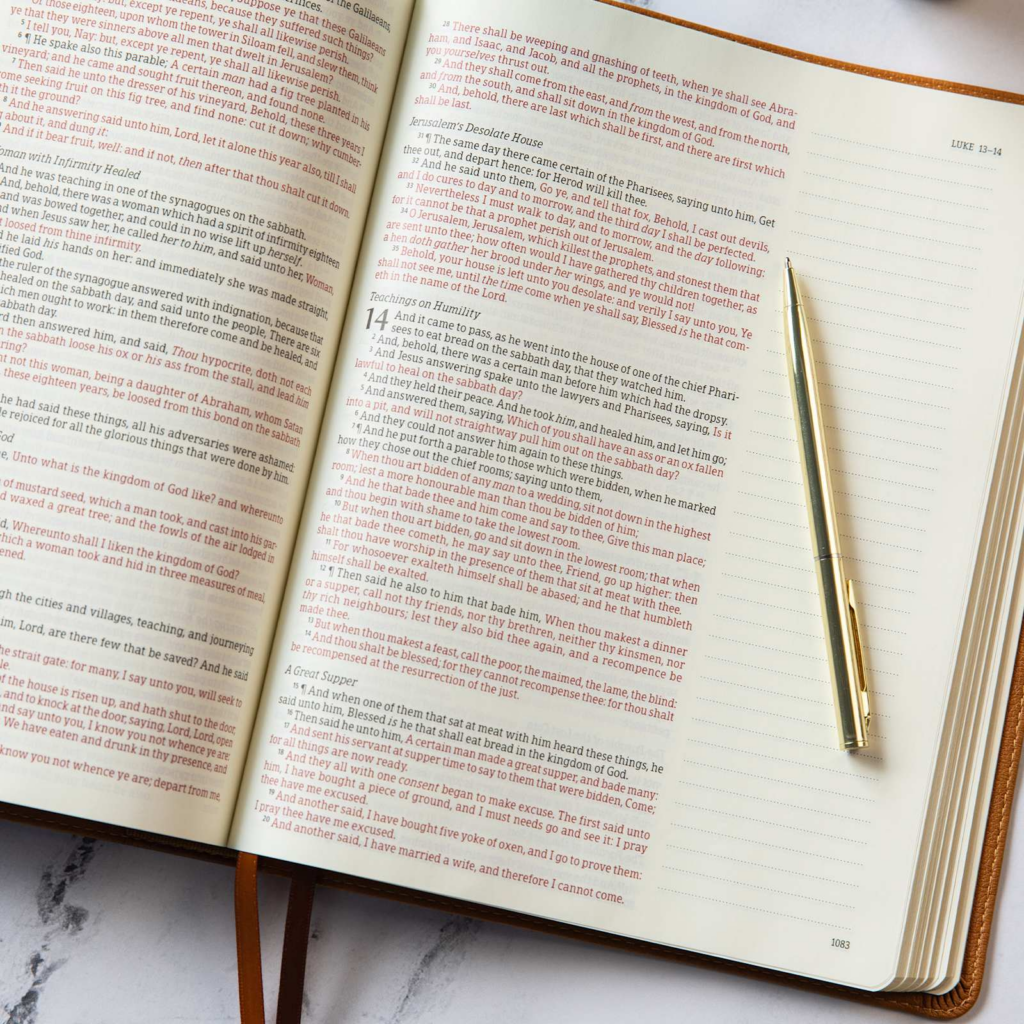 rifices.
ans, because they suppose ye that these Galilaeans
ay: but, except ye repent, ye shall all likewise perish.
Or those eighteen, upon whom the tower in Siloam fell, and slew them, think
ye that they were sinners above all men that dwelt in Jerusalem?
5 I tell you, Nay: but, except ye repent, ye shall all likewise perish.
6 ¶ He spake also this parable; A certain man had a fig tree planted in his
vineyard; and he came and sought fruit thereon, and found none.
7 Then said he unto the dresser of his vineyard, Behold, these three years I
ome seeking fruit on this fig tree, and find none: cut it down; why cumber-
th it the ground?
8 And he answering said unto him, Lord, let it alone this year also, till I shall
g about it, and dung it:
And if it bear fruit, well: and if not, then after that thou shalt cut it down.
oman with Infirmity Healed
And he was teaching in one of the synagogues on the sabbath.
And, behold, there was a woman which had a spirit of infirmity eighteen
and was bowed together, and could in no wise lift up herself.
nd when Jesus saw her, he called her to him, and said unto her, Woman,
t loosed from thine infirmity.
d he laid his hands on her: and immediately she was made straight,
ified God.
the ruler of the synagogue answered with indignation, because that
healed on the sabbath day, and said unto the people, There are six
ich men ought to work: in them therefore come and be healed, and
abbath day.
rd then answered him, and said, Thou hypocrite, doth not each
n the sabbath loose his ox or his ass from the stall, and lead him
ring?
ht not this woman, being a daughter of Abraham, whom Satan
, these eighteen years, be loosed from this bond on the sabbath
he had said these things, all his adversaries were ashamed:
le rejoiced for all the glorious things that were done by him.
God
e, Unto what is the kingdom of God like? and whereunto
of mustard seed, which a man took, and cast into his gar-
d waxed a great tree; and the fowls of the air lodged in
d, Whereunto shall I liken the kingdom of God?
which a woman took and hid in three measures of meal,
ened.
gh the cities and villages, teaching, and journeying
im, Lord, are there few that be saved? And he said
he strait gate: for many, I say unto you, will seek to
le.
of the house is risen up, and hath shut to the door,
, and to knock at the door, saying, Lord, Lord, open
nd say unto you, I know you not whence ye are:
We have eaten and drunk in thy presence, and
know you not whence ye are; depart from me,
28 There shall be weeping and gnashing of teeth, when ye shall see Abra-
ham, and Isaac, and Jacob, and all the prophets, in the kingdom of God, and
you yourselves thrust out.
29 And they shall come from the east, and from the west, and from the north,
and from the south, and shall sit down in the kingdom of God.
30 And, behold, there are last which shall be first, and there are first which
shall be last.
Jerusalem's Desolate House
31 ¶ The same day there came certain of the Pharisees, saying unto him, Get
thee out, and depart hence: for Herod will kill thee.
32 And he said unto them, Go ye, and tell that fox, Behold, I cast out devils,
and I do cures to day and to morrow, and the third day I shall be perfected.
33 Nevertheless I must walk to day, and to morrow, and the day following:
for it cannot be that a prophet perish out of Jerusalem.
34 O Jerusalem, Jerusalem, which killest the prophets, and stonest them that
are sent unto thee; how often would I have gathered thy children together, as
a hen doth gather her brood under her wings, and ye would not!
35 Behold, your house is left unto you desolate: and verily I say unto you, Ye
shall not see me, until the time come when ye shall say, Blessed is he that com-
eth in the name of the Lord.
Teachings on Humility
14 And it came to pass, as he went into the house of one of the chief Phari-
sees to eat bread on the sabbath day, that they watched him.
2 And, behold, there was a certain man before him which had the dropsy.
3 And Jesus answering spake unto the lawyers and Pharisees, saying, Is it
lawful to heal on the sabbath day?
4 And they held their peace. And he took him, and healed him, and let him go;
5 And answered them, saying, Which of you shall have an ass or an ox fallen
into a pit, and will not straightway pull him out on the sabbath day?
6 And they could not answer him again to these things.
7 ¶ And he put forth a parable to those which were bidden, when he marked
how they chose out the chief rooms; saying unto them,
8 When thou art bidden of any man to a wedding, sit not down in the highest
room; lest a more honourable man than thou be bidden of him;
9 And he that bade thee and him come and say to thee, Give this man place;
and thou begin with shame to take the lowest room.
10 But when thou art bidden, go and sit down in the lowest room; that when
he that bade thee cometh, he may say unto thee, Friend, go up higher: then
shalt thou have worship in the presence of them that sit at meat with thee.
11 For whosoever exalteth himself shall be abased; and he that humbleth
himself shall be exalted.
12 ¶ Then said he also to him that bade him, When thou makest a dinner
or a supper, call not thy friends, nor thy brethren, neither thy kinsmen, nor
thy rich neighbours; lest they also bid thee again, and a recompence be
made thee.
13 But when thou makest a feast, call the poor, the maimed, the lame, the blind:
14 And thou shalt be blessed; for they cannot recompense thee: for thou shalt
be recompensed at the resurrection of the just.
A Great Supper
15 ¶ And when one of them that sat at meat with him heard these things, he
said unto him, Blessed is he that shall eat bread in the kingdom of God.
16 Then said he unto him, A certain man made a great supper, and bade many:
17 And sent his servant at supper time to say to them that were bidden, Come;
for all things are now ready.
18 And they all with one consent began to make excuse. The first said unto
him, I have bought a piece of ground, and I must needs go and see it: I pray
thee have me excused.
19 And another said, I have bought five yoke of oxen, and I go to prove them:
I pray thee have me excused.
20 And another said, I have married a wife, and therefore I cannot come.
LUKE 13–14
1083